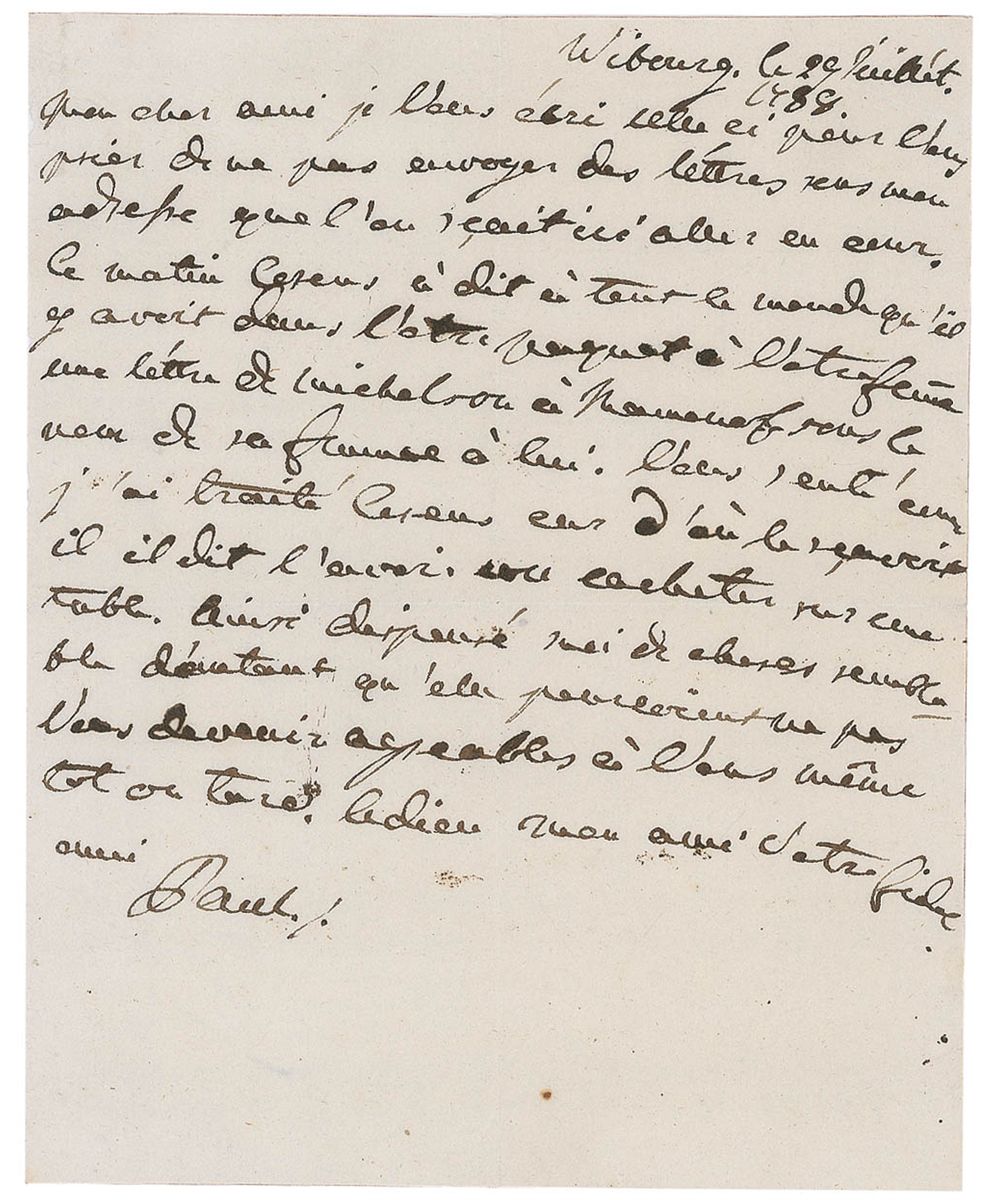 Wibourg. le 29 Juillét.
1788
mon cher ami je Vous écri celle ci pour Vous
prier de ne pas envoyer des léttres sous mon
adresse que l'on sçait ici aller en cour.
Ce matin à dit à tout le monde qu'il
y avoit dans Votre paquet à Votre feme
une léttre de michelson à Mamonof sous le
nom de sa femme à lui. Vous senté com
j'ai traité sur d'où le sçavoir
il il dit l'avoir vu cacheter sur une
table. Ainsi dispensé moi de choses sembla
ble d'autant qu'elle pouroient ne pas
Vous devenir agreables à Vous même
tot ou tard. Adieu mon ami Votre fidel
ami
Paul./.